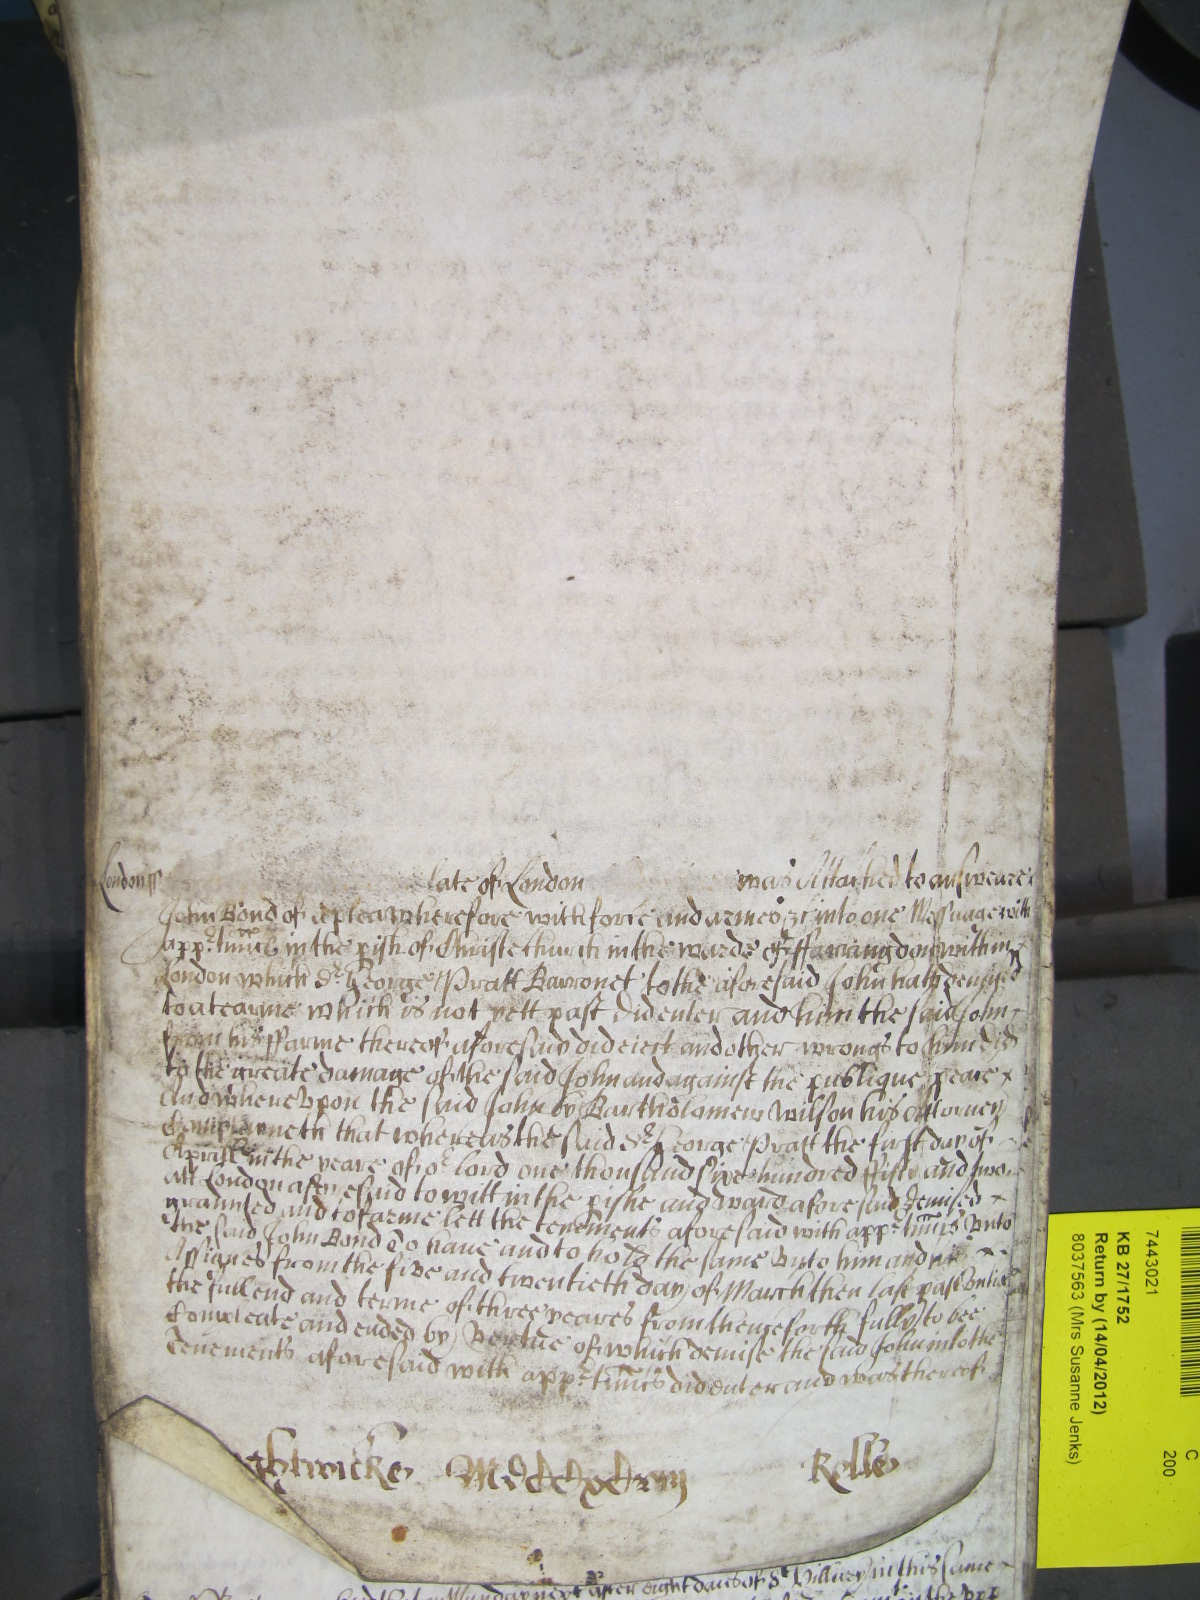 London ss late of London was Attached to answeare
John Bond of a plea wherefore with force and armes &c into one Messuage with
app:r tun̅cs in the pish of Christchurch in the warde of ffarringdon within
London which Sr. George Pratt Barronet to the aforesaid John hath demysed
to a tearme which is not yett past did enter and him the said John
from his ffarme thereof aforesaid did eiect and other wrongs to him did
to the greate damage of the said John and against the publique peace
And whereupon the said John by Bartholomew Wilson his Attorney
Complayneth that whereas the said Sr. George Pratt the first day of
Aprill in the yeare of or. lord one thousand sixe hundred ffiftie and two
att London aforesaid to witt in the pishe and ward aforesaid demised
graunted and to farme lett the tenements aforesaid with app:r tun̅cs Unto
the said John Bond To have and to hold the same Unto him and his
Assignes from the five and twentieth day of March then last past Untill
the full end and terme of three yeares from thenceforth fully to bee
Compleate and ended by Vertue of which demise the said John into the
Tenements aforesaid with app:r tun̅cs did enter and was thereof
Rolle
Munday next after eight daies of St. Hillary in this same
7443021
KB 27/1752
Return by (14/04/2012)
8037563 (Mrs Susanne Jenks)
C
200